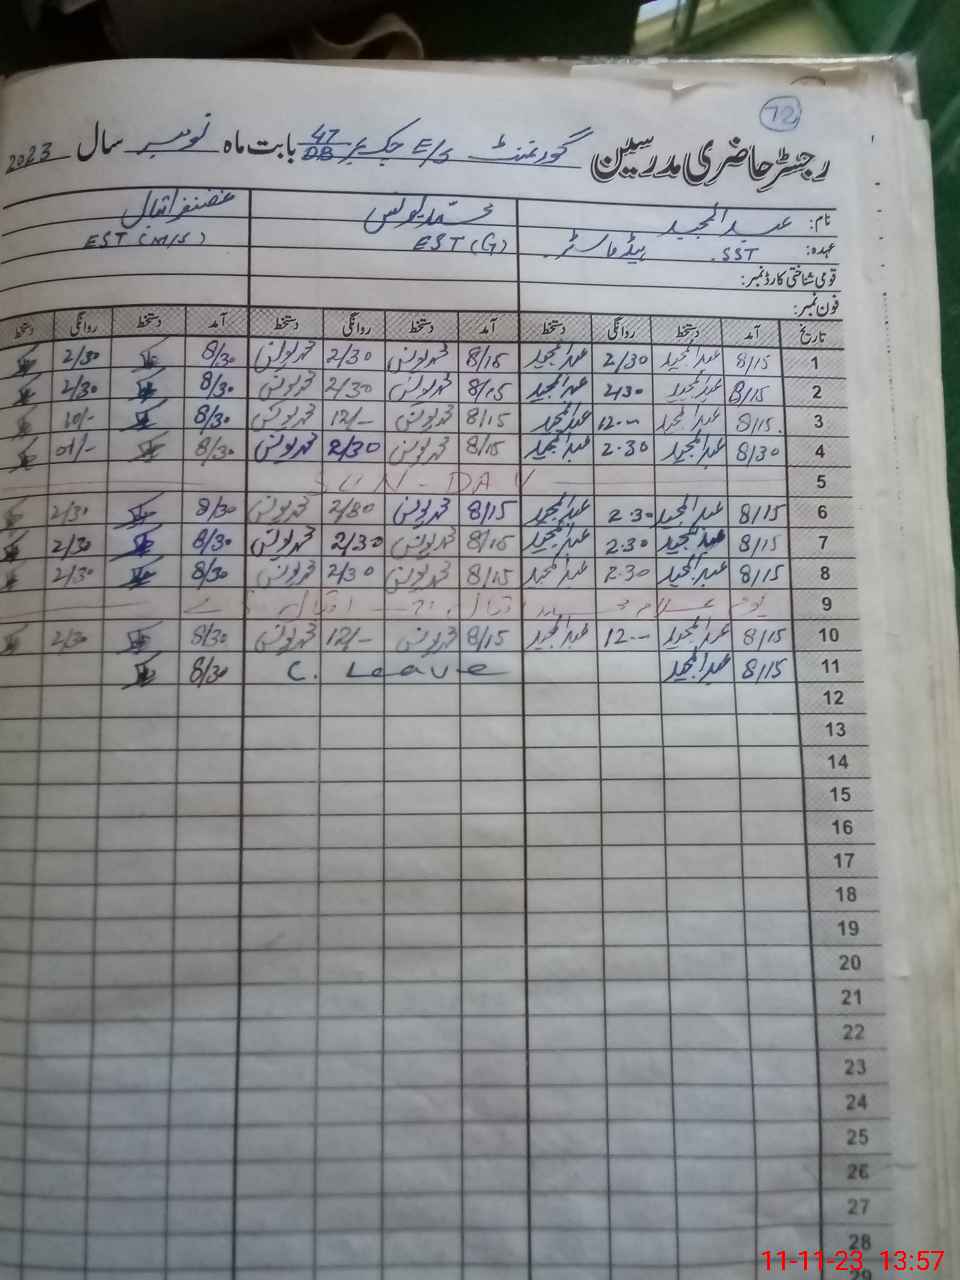 72
رجسٹر حاضری مدرسین گورنمنٹ E/S چک نمبر 47/DB بابت ماہ نومبر سال 2023
نام: عبدالمجید محمد یونس غضنفر اقبال
عہدہ: SST. ہیڈ ماسٹر. EST (G) EST (M/S)
قومی شناختی کارڈ نمبر:
فون نمبر:
تاریخ آمد دستخط روانگی دستخط آمد دستخط روانگی دستخط آمد دستخط روانگی دستخط
1 8/15 عبدالمجید 2/30 عبدالمجید 8/15 محمد یونس 2/30 محمد یونس 8/30 2/30
2 8/15 عبدالمجید 2/30 عبدالمجید 8/15 محمد یونس 2/30 محمد یونس 8/30 2/30
3 8/15 عبدالمجید 12-- عبدالمجید 8/15 محمد یونس 12/- محمد یونس 8/30 10/-
4 8/30 عبدالمجید 2.30 عبدالمجید 8/15 محمد یونس 2/30 محمد یونس 8/30
5 SUN-DAY
6 8/15 عبدالمجید 2.30 عبدالمجید 8/15 محمد یونس 2/30 محمد یونس 8/30 2/30
7 8/15 عبدالمجید 2.30 عبدالمجید 8/15 محمد یونس 2/30 محمد یونس 8/30 2/30
8 8/15 عبدالمجید 2.30 عبدالمجید 8/15 محمد یونس 2/30 محمد یونس 8/30 2/30
9 یوم علامہ محمد اقبال
10 8/15 عبدالمجید 12-- عبدالمجید 8/15 محمد یونس 12/- محمد یونس 8/30 2/30
11 8/15 عبدالمجید C. Leave 8/30
12
13
14
15
16
17
18
19
20
21
22
23
24
25
26
27
28
29
11-11-23 13:57